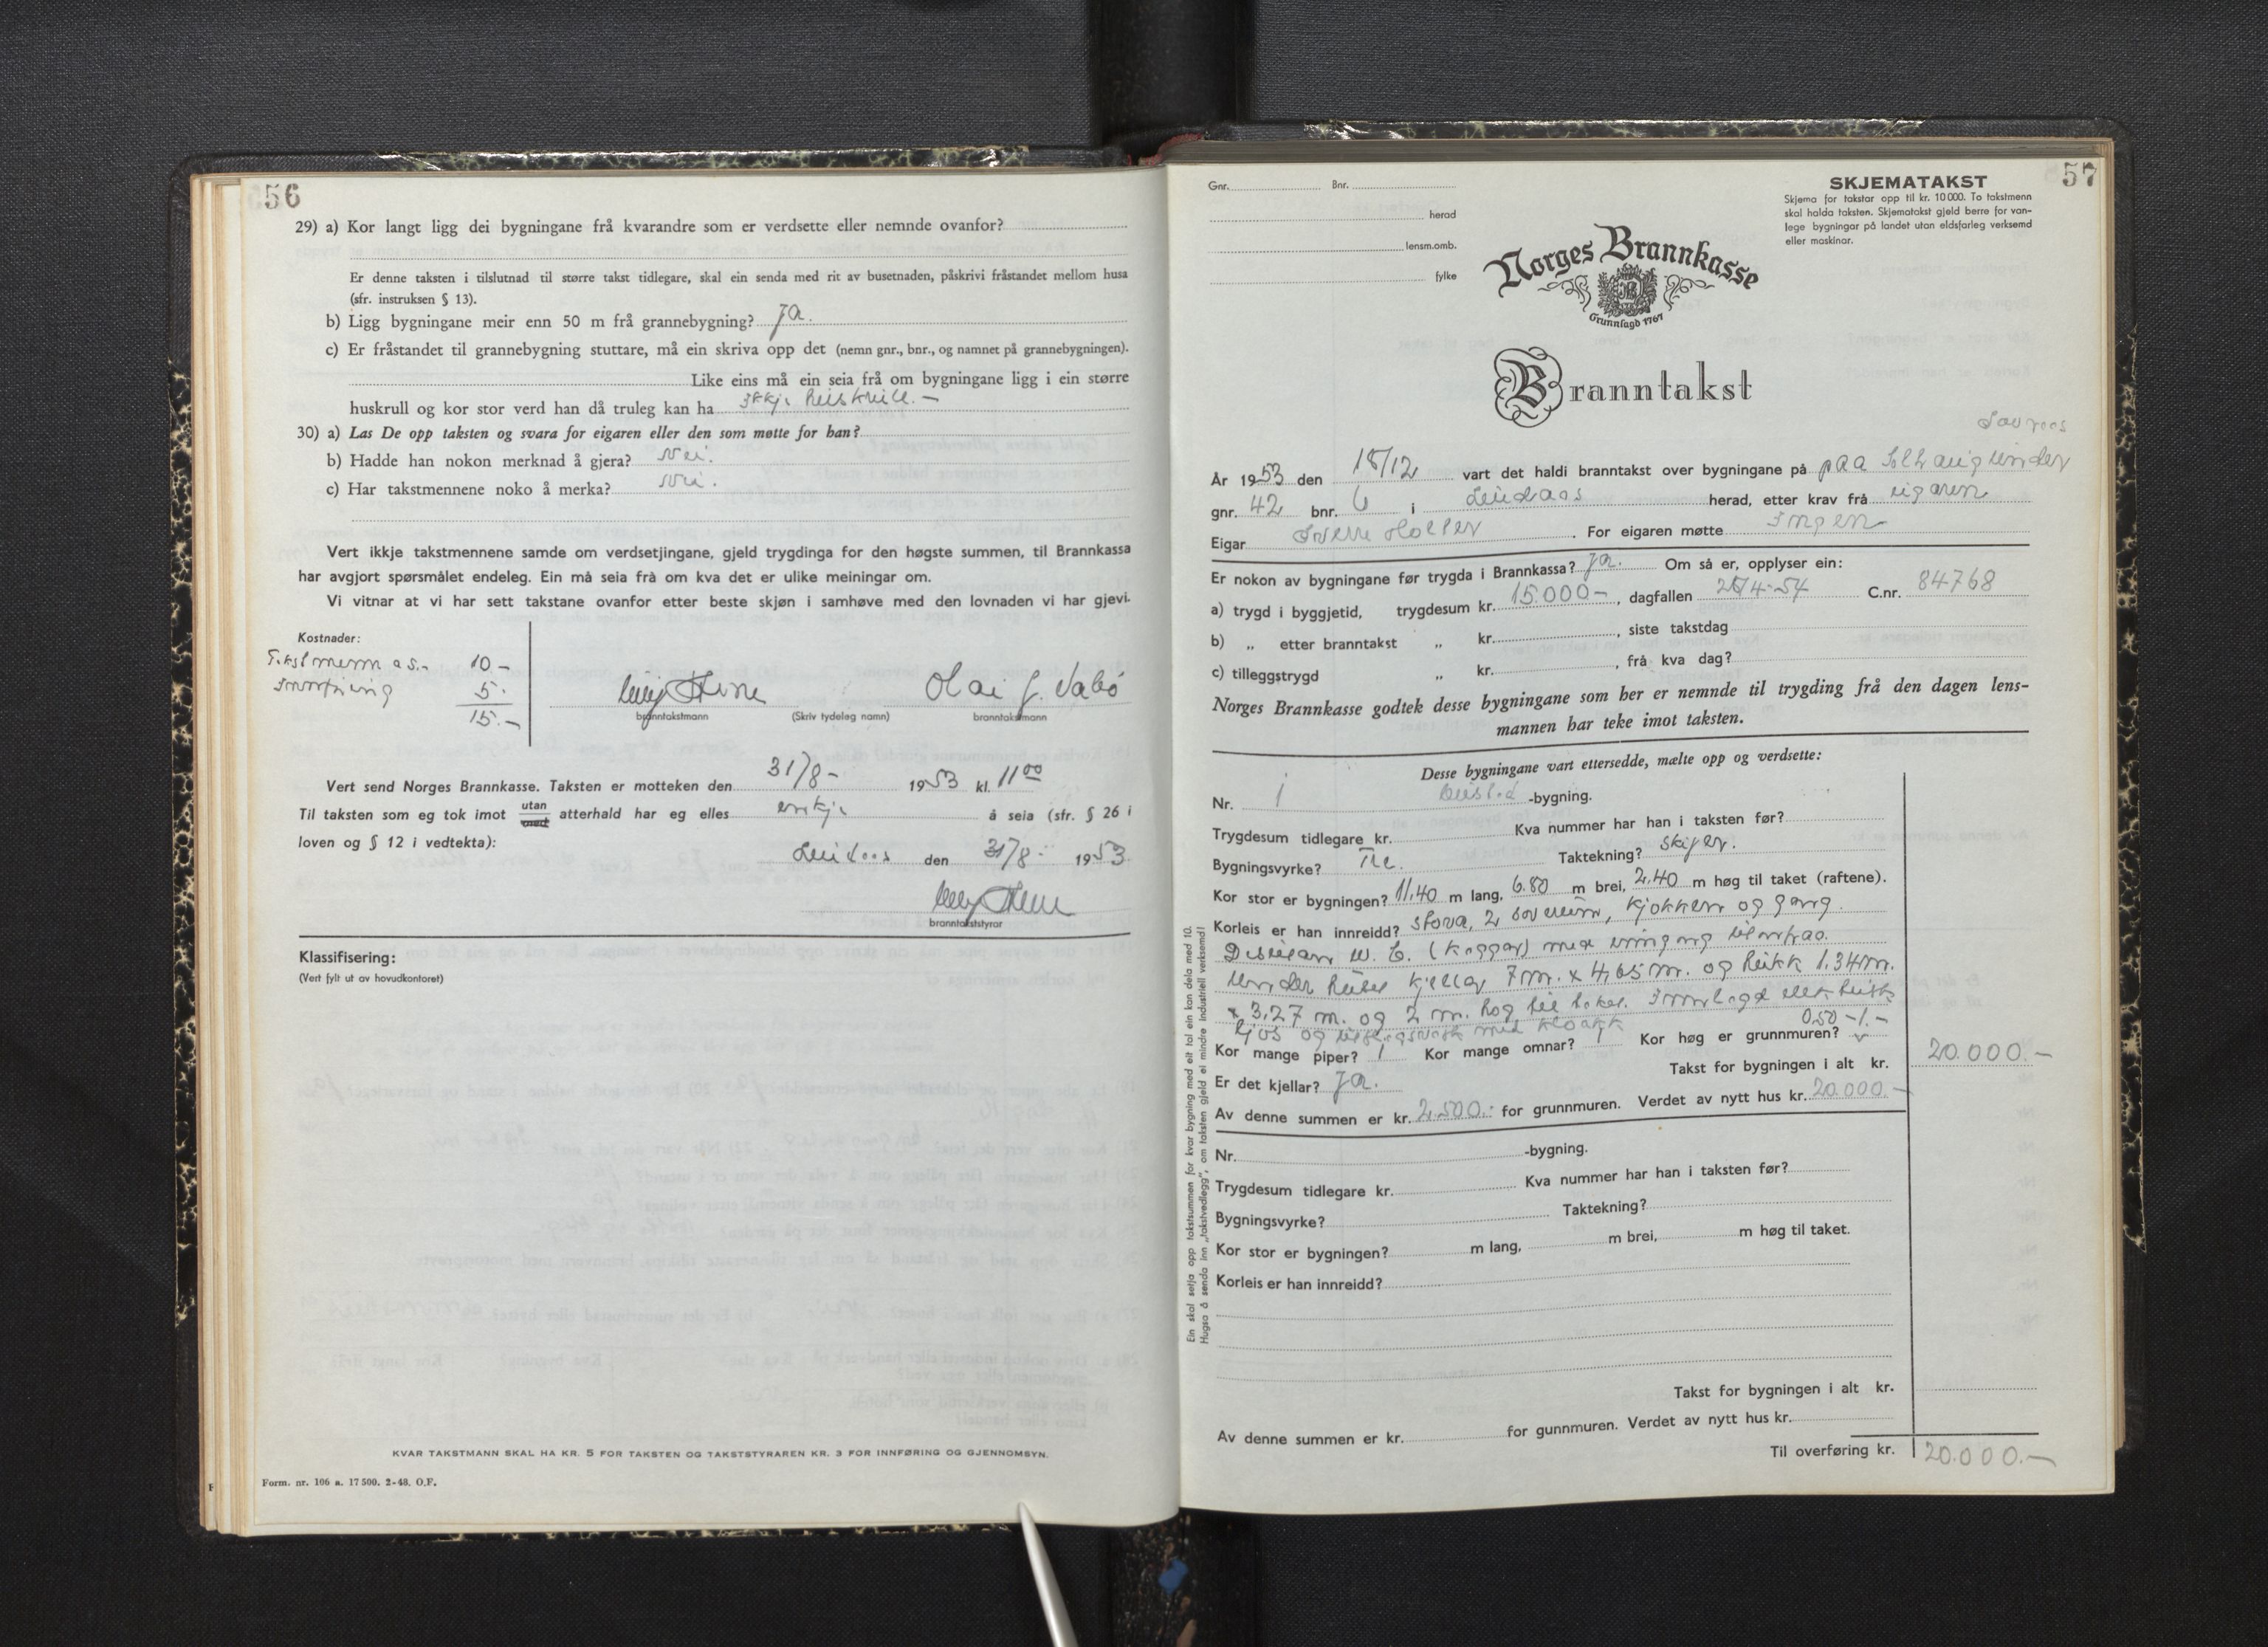 56
29) a) Kor langt ligg dei bygningane frå kvarandre som er verdsette eller nemnde ovanfor?
Er denne taksten i tilslutnad til større takst tidlegare, skal ein senda med rit av busetnaden, påskrivi fråstandet mellom husa
(sfr. instruksen § 13).
b) Ligg bygningane meir enn 50 m frå grannebygning? Ja.
c) Er fråstandet til grannebygning stuttare, må ein skriva opp det (nemn gnr., bnr., og namnet på grannebygningen).
Like eins må ein seia frå om bygningane ligg i ein større
huskrull og kor stor verd han då truleg kan ha Ikkje huskrull.-
30) a) Las De opp taksten og svara for eigaren eller den som møtte for han?
b) Hadde han nokon merknad å gjera? Nei.
c) Har takstmennene noko å merka? Nei.
Vert ikkje takstmennene samde om verdsetjingane, gjeld trygdinga for den høgste summen, til Brannkassa
har avgjort spørsmålet endeleg. Ein må seia frå om kva det er ulike meiningar om.
Vi vitnar at vi har sett takstane ovanfor etter beste skjøn i samhøve med den lovnaden vi har gjevi.
Kostnader:
Takstmenn a 5.- 10-
Innføring 5.
15.-
Olai J. Vabø
branntakstmann (Skriv tydeleg namn) branntakstmann
Vert send Norges Brannkasse. Taksten er motteken den 31/8- 1953 kl. 11 00
Til taksten som eg tok imot utan med atterhald har eg elles innkje å seia (sfr. § 26 i
loven og § 12 i vedtekta):
Lindaas den 31/8- 1953
branntakststyrar
Klassifisering:
(Vert fylt ut av hovudkontoret)
KVAR TAKSTMANN SKAL HA KR. 5 FOR TAKSTEN OG TAKSTSTYRAREN KR. 3 FOR INNFØRING OG GJENNOMSYN.
Form. nr. 106 a. 17 500. 2-48. O.F.
57
Gnr. Bnr.
herad
lensm.omb.
fylke
SKJEMATAKST
Skjema for takstar opp til kr. 10 000. To takstmenn
skal halda taksten. Skjematakst gjeld berre for van-
lege bygningar på landet utan eldsfarleg verksemd
eller maskinar.
Norges Brannkasse
Grunnlagd 1767
Branntakst
År 1953 den 18/12 vart det haldi branntakst over bygningane på paa Solhaug under
gnr. 42 bnr. 6 i Lindaas herad, etter krav frå eigaren
Eigar Sverre Holter. For eigaren møtte Ingen
Er nokon av bygningane før trygda i Brannkassa? Ja. Om så er, opplyser ein:
a) trygd i byggjetid, trygdesum kr. 15.000-, dagfallen 4-54 C.nr. 84768
b) „ etter branntakst „ kr. , siste takstdag
c) tilleggstrygd „ kr. , frå kva dag?
Norges Brannkasse godtek desse bygningane som her er nemnde til trygding frå den dagen lens-
mannen har teke imot taksten.
Desse bygningane vart ettersedde, mælte opp og verdsette:
Nr. 1 Busted -bygning.
Trygdesum tidlegare kr. Kva nummer har han i taksten før?
Bygningsvyrke? Tre. Taktekning? Skifer.
Kor stor er bygningen? 11,40 m lang, 6.80 m brei, 2.40 m høg til taket (raftene).
Korleis er han innreidd? Stova, 2 soverum, kjøkken og gang.
Desutan W. C. med inngang utanfraa.
Under huset kjellar 7 m. x 4,65 m. og 1.34 m.
x 3,27 m. og 2 m. høg til taket. Innlagd elektrisk
ljos og med kloakk
Kor mange piper? 1 Kor mange omnar? 1 Kor høg er grunnmuren? 0,50 - 1.-
Er det kjellar? Ja. Takst for bygningen i alt kr. 20.000.-
Av denne summen er kr. 2.500.- for grunnmuren. Verdet av nytt hus kr. 20.000.-
Nr. -bygning.
Trygdesum tidlegare kr. Kva nummer har han i taksten før?
Bygningsvyrke? Taktekning?
Kor stor er bygningen? m lang, m brei, m høg til taket.
Korleis er han innreidd?
Takst for bygningen i alt kr.
Av denne summen er kr. for gunnmuren. Verdet av nytt hus kr.
Til overføring kr. 20.000.-
Ein skal setja opp takstsummen for kvar bygning med eit tal ein kan dela med 10.
Hugsa å senda inn „takstvedlegg", om taksten gjeld ei mindre industriell verksemd!